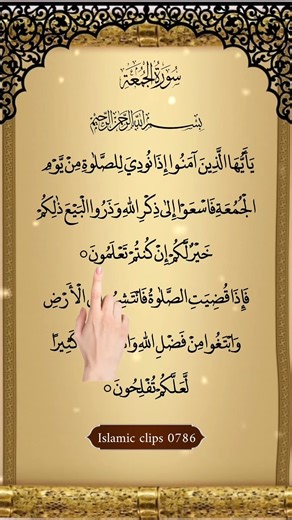 سُورَةُ الْجُمُعَة
بِسْمِ اللهِ الرَّحْمٰنِ الرَّحِيْمِ
يَا أَيُّهَا الَّذِينَ آمَنُوا إِذَا نُودِيَ لِلصَّلٰوةِ مِنْ يَّوْمِ
الْجُمُعَةِ فَاسْعَوْا إِلٰى ذِكْرِ اللهِ وَذَرُوا الْبَيْعَ ذٰلِكُمْ
خَيْرٌ لَّكُمْ إِنْ كُنْتُمْ تَعْلَمُونَ ○
فَإِذَا قُضِيَتِ الصَّلٰوةُ الْأَرْضِ
وَابْتَغُوا مِنْ فَضْلِ اللهِ كَثِيرًا
لَّعَلَّكُمْ تُفْلِحُونَ ○
Islamic clips 0786